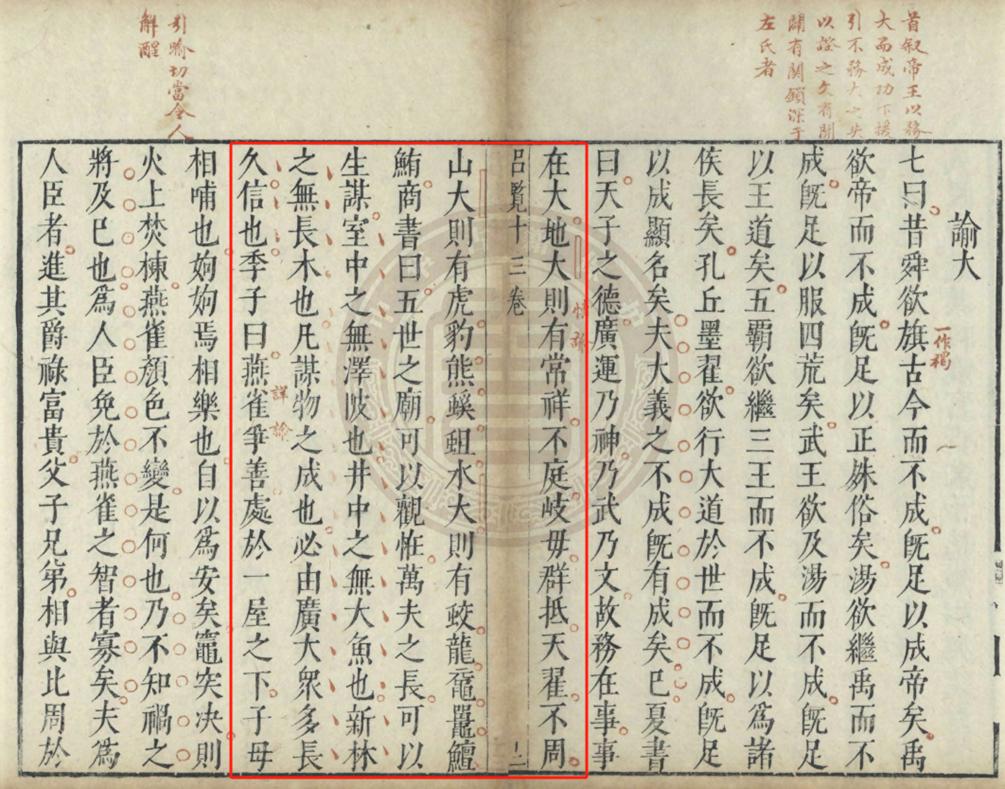 首叙帝王以務
大而成功下援
引不務大之失
以證之文有開
闔有關鎖深于
左氏者
諭大
一作獨
七曰昔舜欲旗古今而不成旣足以成帝矣禹
欲帝而不成旣足以正姝俗矣湯欲繼禹而不
成旣足以服四荒矣武王欲及湯而不成旣足
以王道矣五霸欲繼三王而不成旣足以爲諸
侯長矣孔丘墨翟欲行大道於世而不成旣足
以成顯名矣夫大義之不成旣有成矣已夏書
曰天子之德廣運乃神乃武乃文故務在事事
在大地大則有常祥不庭岐毋群抵天翟不周
呂覽十三卷
十二
山大則有虎豹熊螇蛆水大則有蛟龍黿鼉鱣
鮪商書曰五世之廟可以觀恠萬夫之長可以
生謀室中之無澤陂也井中之無大魚也新林
之無長木也凡謀物之成也必由廣大衆多長
久信也季子曰燕雀爭善處於一屋之下子母
詳諭
引喻切當令人
解醒
相哺也姁姁焉相樂也自以爲安矣竈突决則
火上焚棟燕雀顏色不變是何也乃不知禍之
將及已也爲人臣免於燕雀之智者寡矣夫爲
人臣者進其爵祿富貴父子兄弟相與比周於